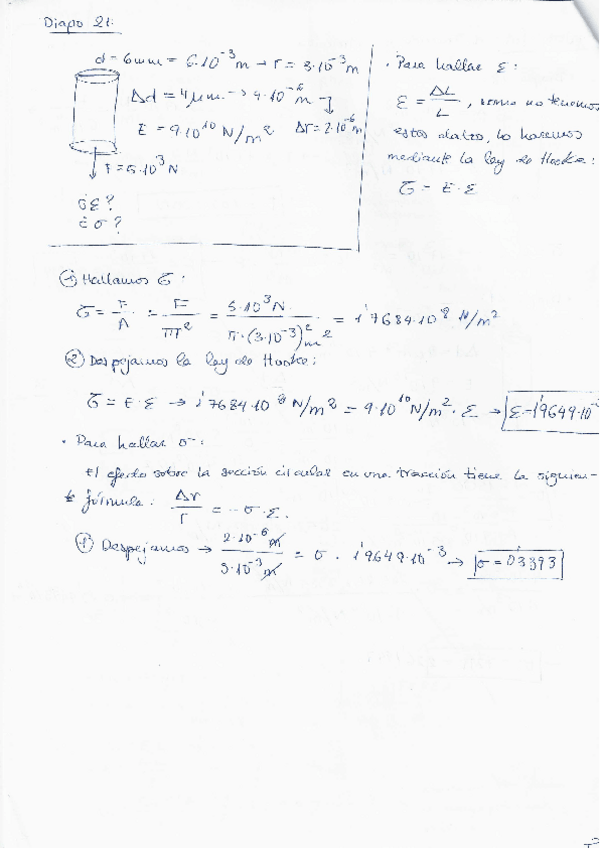 Diapo 21:
d = 6mm = 6·10⁻³ m → r = 3·10⁻³ m
Δd = 4 μm → 4·10⁻⁶ m → Δr = 2·10⁻⁶ m
E = 9·10¹⁰ N/m²
F = 5·10³ N
¿ε?
¿σ?
· Para hallar ε:
ε = ΔL/L, como no tenemos
estos datos, lo hacemos
mediante la ley de Hooke:
τ = E·ε
① Hallamos τ:
τ = F/A = F/πr² = 5·10³ N / π·(3·10⁻³)² m² = 1'7684·10⁸ N/m²
② Despejamos la ley de Hooke:
τ = E·ε → 1'7684·10⁸ N/m² = 9·10¹⁰ N/m² · ε → ε = 1'9649·10⁻
· Para hallar σ:
El efecto sobre la sección circular en una tracción tiene la siguien-
te fórmula: Δr/r = -σ·ε.
① Despejamos → 2·10⁻⁶ m / 3·10⁻³ m = σ · 1'9649·10⁻³ → σ = 0'3393